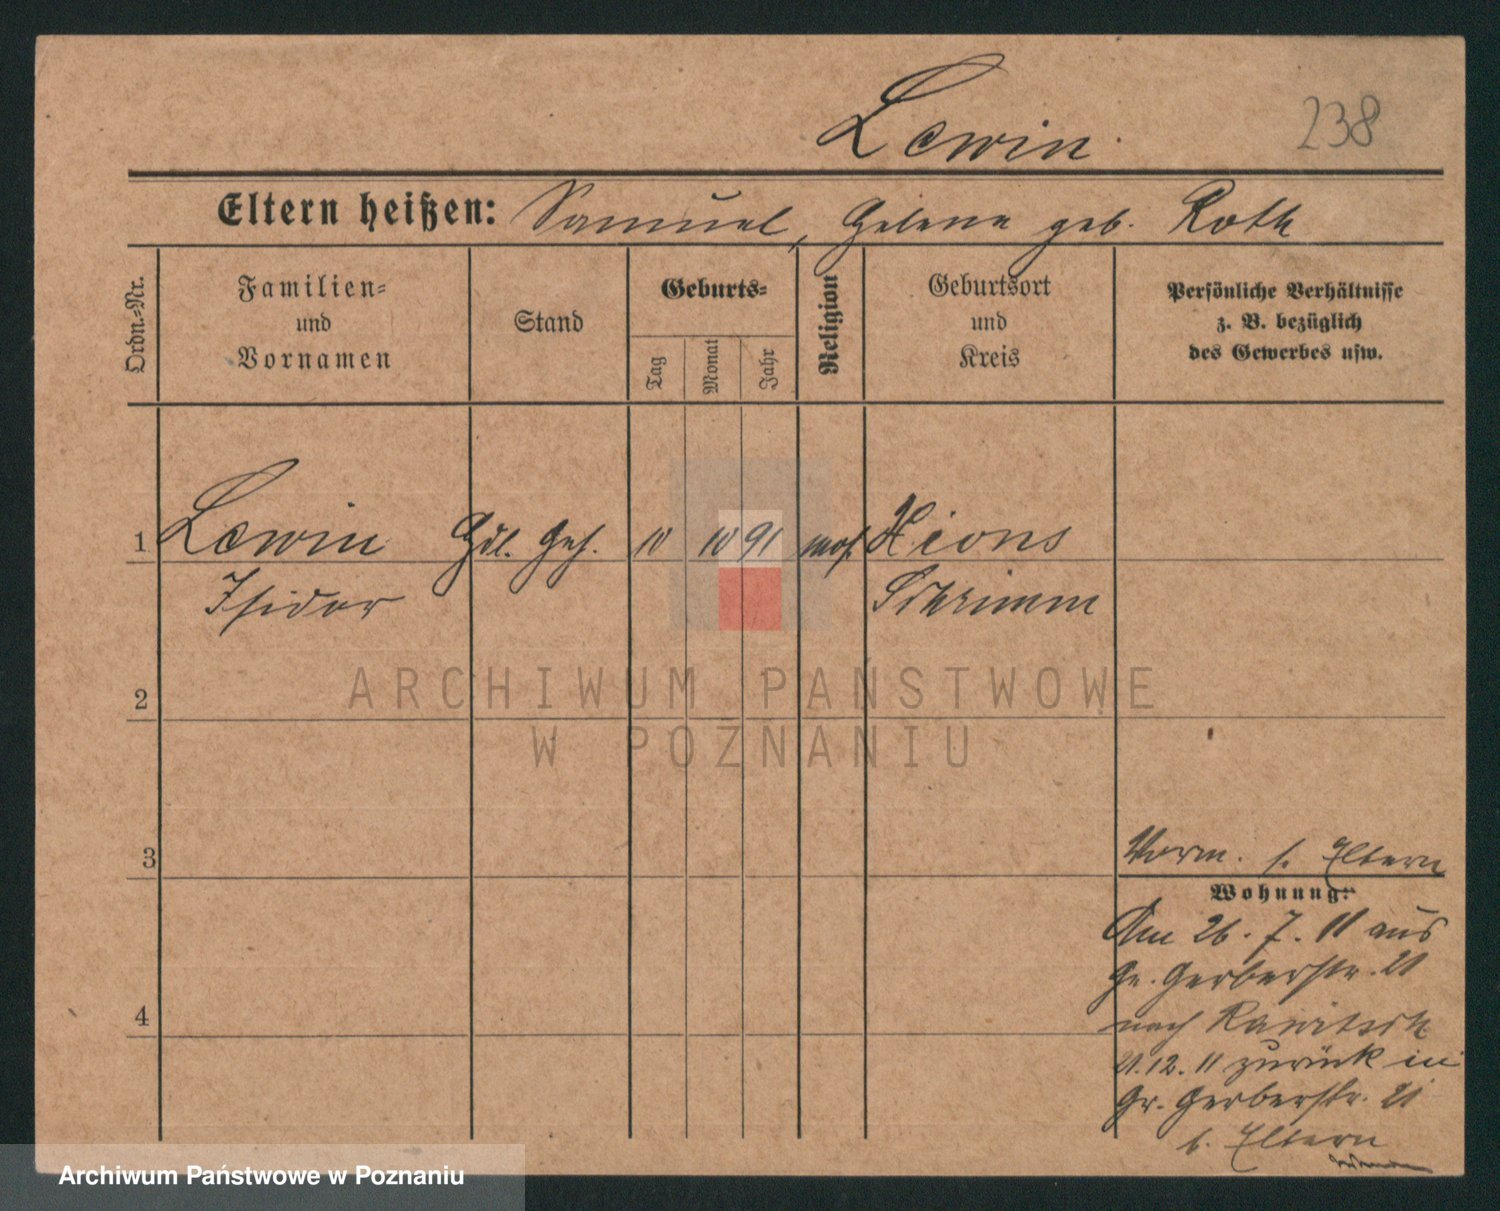 Lewin.
238
Eltern heißen: Samuel, Helene geb. Roth
Ordn.-Nr.
Familien-
und
Vornamen
Stand
Geburts-
Tag
Monat
Jahr
Religion
Geburtsort
und
Kreis
Persönliche Verhältnisse
z. B. bezüglich
des Gewerbes usw.
1 Lewin Hdl. Geh. 10 10 91 mos. Xions
Isidor Schrimm
2
3
Vorm. b. Eltern
Wohnung:
Am 26. 7. 11 aus
Gr. Gerberstr. 21
4
nach Rawitsch
21.12. 11 zurück in
Gr. Gerberstr. 21
b. Eltern
ARCHIWUM PAŃSTWOWE
W POZNANIU
Archiwum Państwowe w Poznaniu